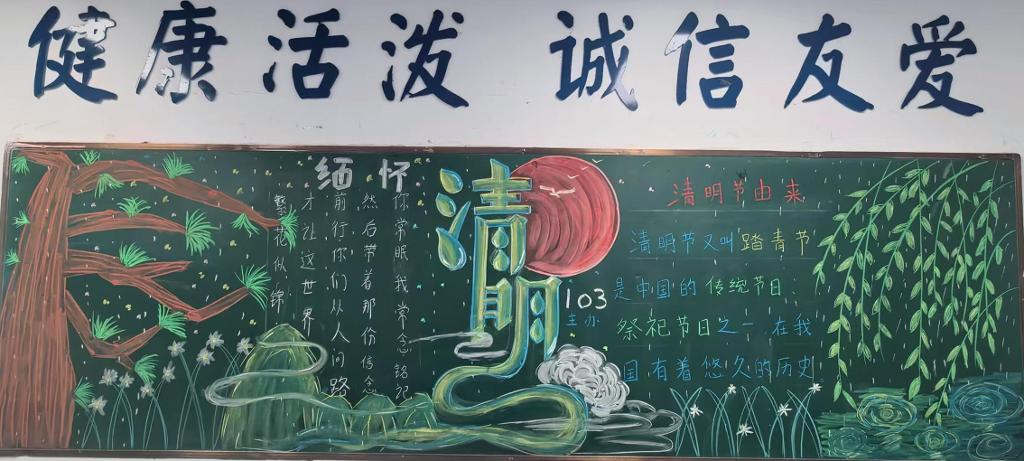 健康活泼 诚信友爱
缅怀
你常眠我常念铭记
然后带着那份信念
前行你们从人间路
才让这世界
繁花似锦
清明
103
主办
清明节由来
清明节又叫踏青节
是中国的传统节日、
祭祀节日之一,在我
国有着悠久的历史